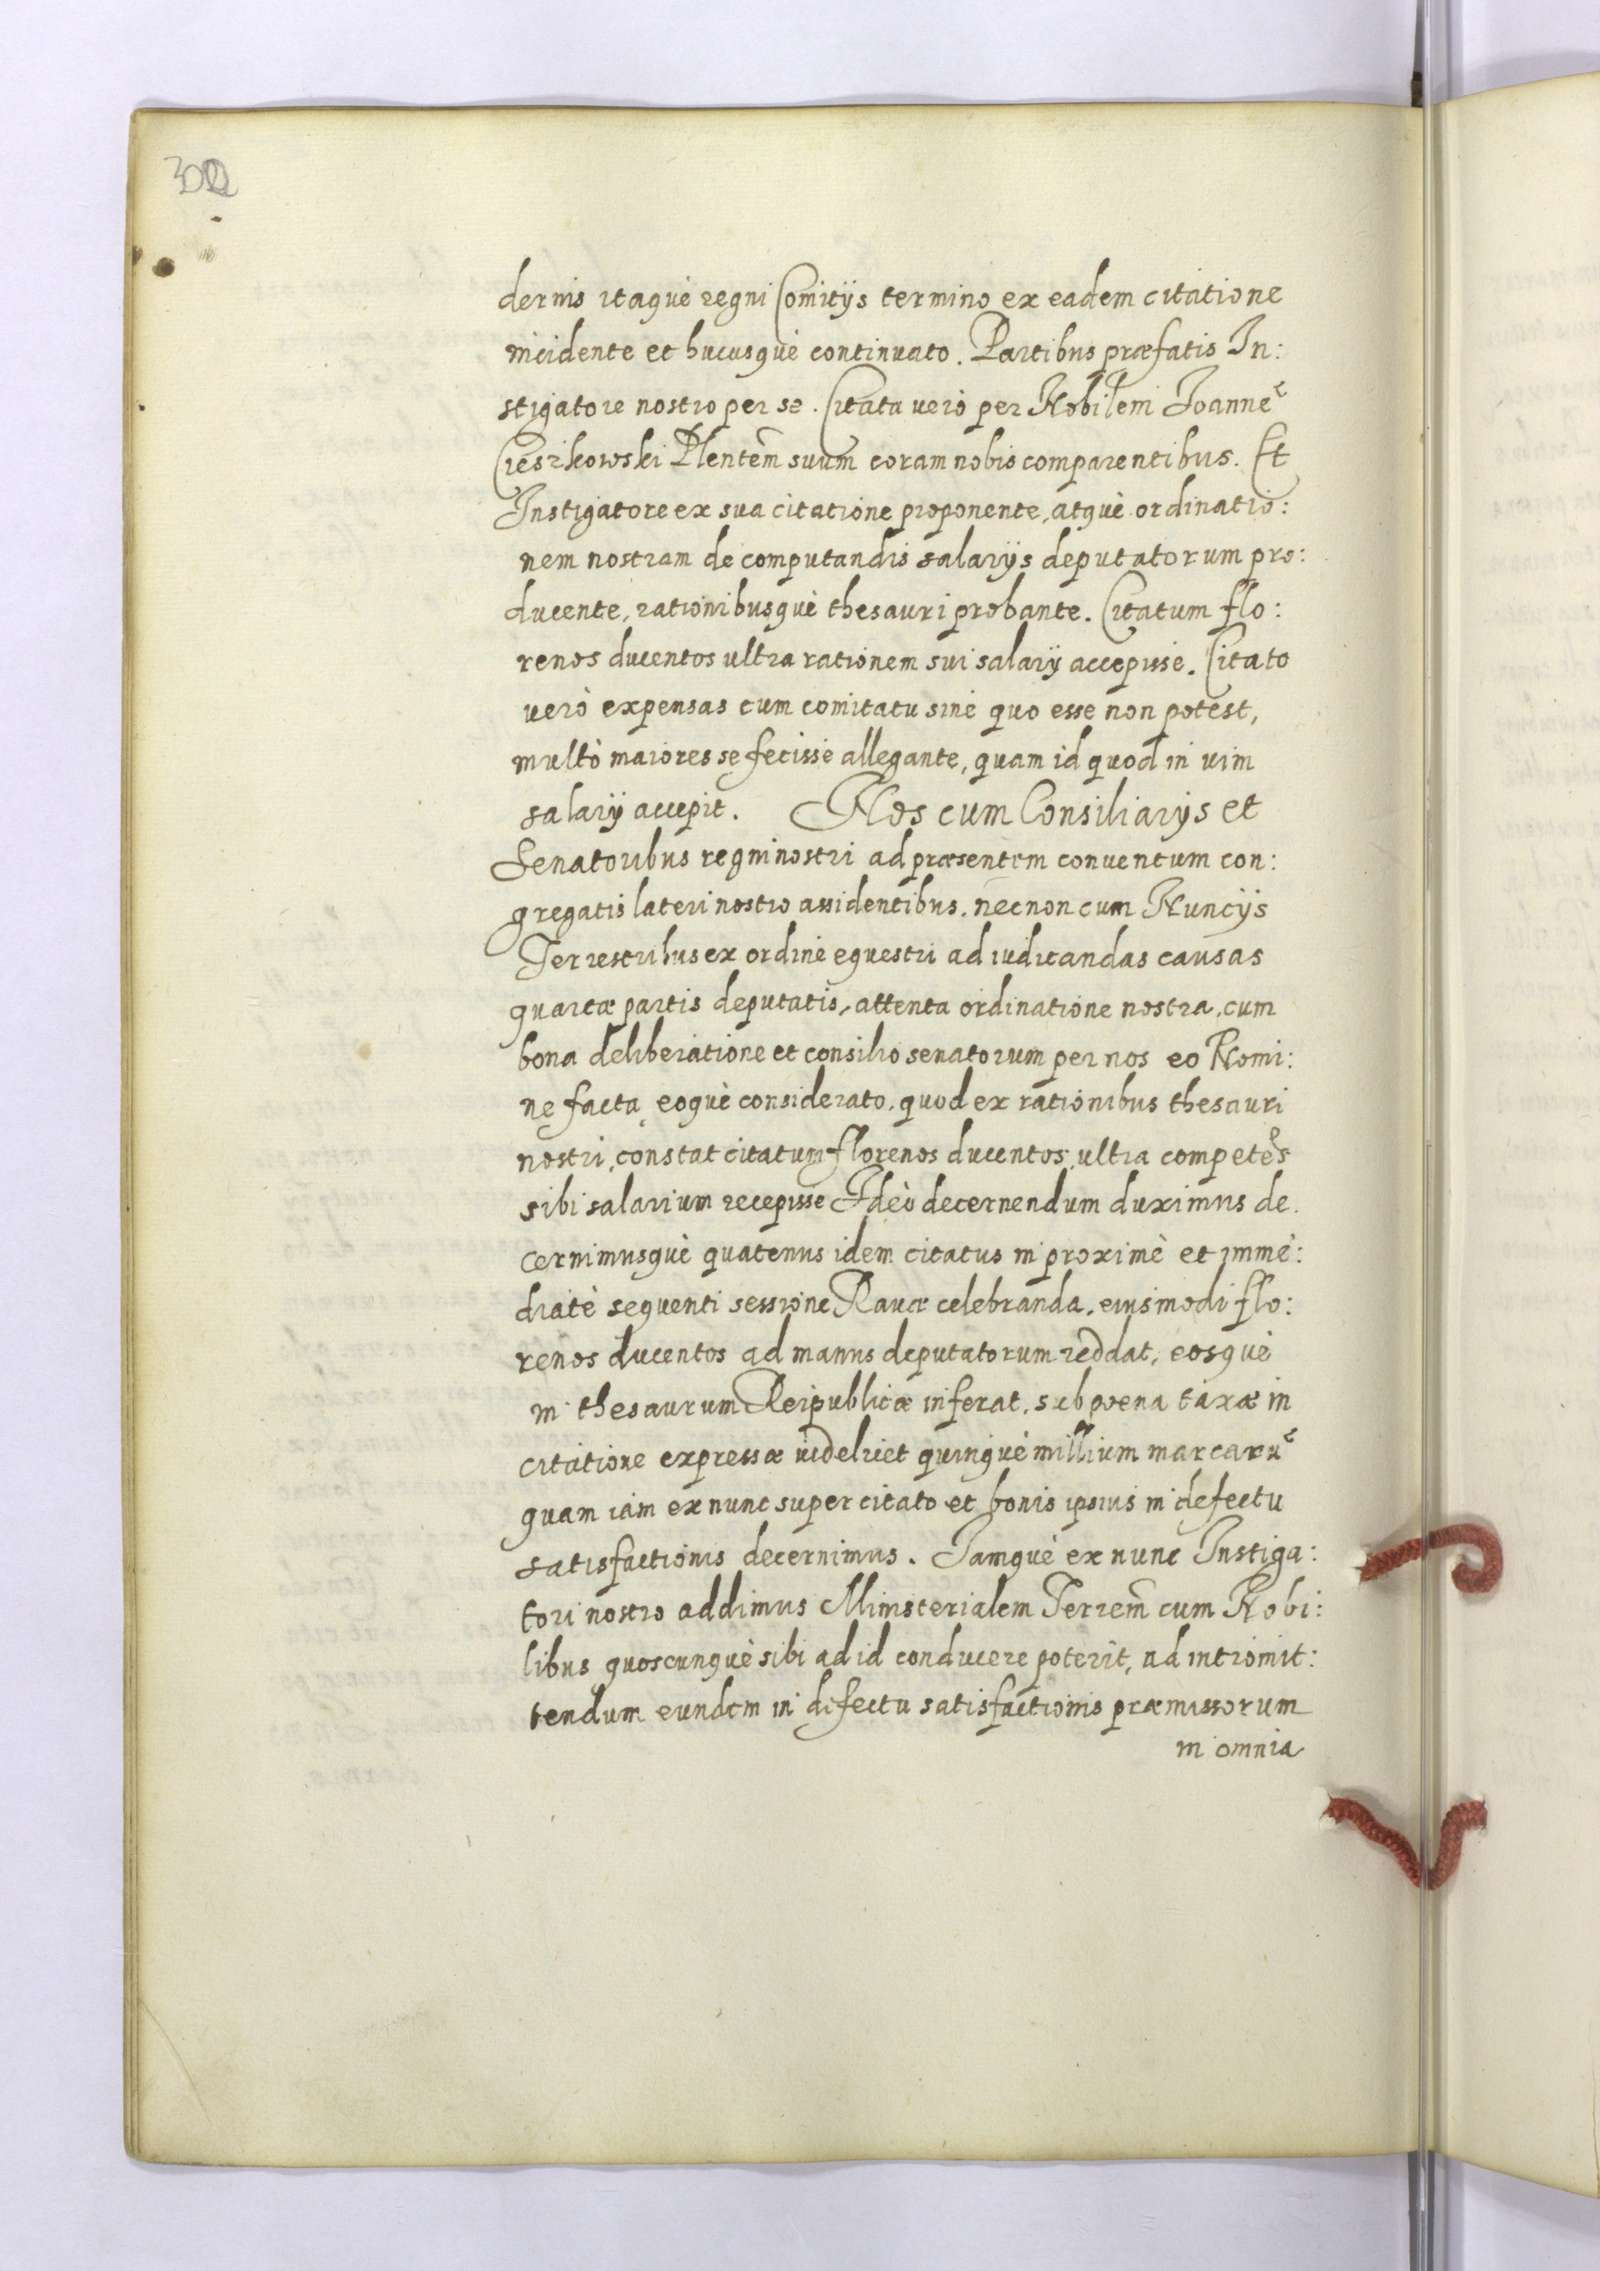 dernis itaquè regni Comitijs termino ex eadem citatione
incidente et hucusquè continuato. Partibus præfatis In:
stigatore nostro per se. Citata verò per Nobilem Joannē
Cieszkowski Plentēm suum coram nobis comparentibus. Et
Instigatore ex sua citatione proponente, atquè ordinatio:
nem nostram de computandis salarijs deputatorum pro:
ducente, rationibusquè thesauri probante. Citatum flo:
renos ducentos ultra rationem sui salarij accepisse. Citato
verò expensas cum comitatu sine quo esse non potest,
multò maiores se fecisse allegante, quam id quod in vim
salarij accepit. Nos cum Consiliarijs et
Senatoribus regni nostri ad præsentem conventum con:
gregatis lateri nostro assidentibus, necnon cum Nuncijs
Terrestribus ex ordine equestri ad iudicandas causas
quartæ partis deputatis, attenta ordinatione nostra, cum
bona deliberatione et consilio senatorum per nos eo Nomi:
ne facta, eoquè considerato, quod ex rationibus thesauri
nostri, constat citatum florenos ducentos, ultra competēs
sibi salarium recepisse Ideò decernendum duximus de
cernimusquè quatenus idem citatus in proximè et imme:
diatè sequenti sessione Ravæ celebranda, eiusmodi flo:
renos ducentos ad manus deputatorum reddat, eosquè
in thesaurum Reipublicæ inferat, sub poena taxæ in
citatione expressæ videlicet quinquè millium marcarū
quam iam ex nunc super citato et bonis ipsius in defectu
satisfactionis decernimus. Jamquè ex nunc Instiga:
tori nostro addimus Ministerialem Terrēm cum Nobi:
libus quoscunquè sibi ad id conducere poterit, ad intromit:
tendum eundem in defectu satisfactionis præmissorum
in omnia